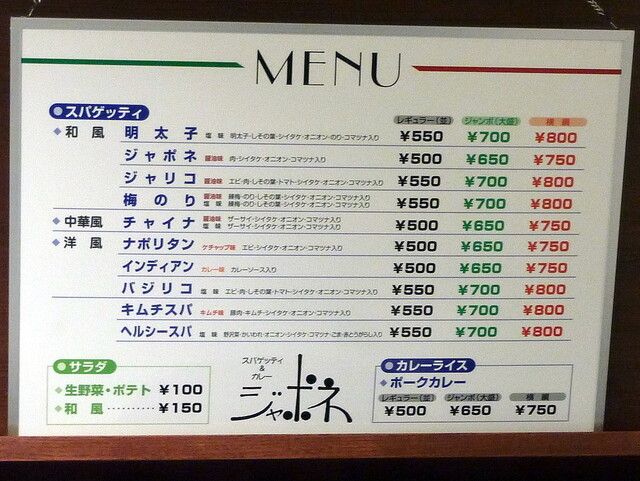 MENU
スパゲッティ
レギュラー(並) ジャンボ(大盛) 横綱
和風 明太子 塩味 明太子・しその葉・シイタケ・オニオン・のり・コマツナ入り ¥550 ¥700 ¥800
ジャポネ 醤油味 肉・シイタケ・オニオン・コマツナ入り ¥500 ¥650 ¥750
ジャリコ 醤油味 エビ・肉・しその葉・トマト・シイタケ・オニオン・コマツナ入り ¥550 ¥700 ¥800
梅のり 醤油味 練梅・のり・しその葉・シイタケ・オニオン・コマツナ入り ¥550 ¥700 ¥800
塩味 練梅・のり・しその葉・シイタケ・オニオン・コマツナ入り
中華風 チャイナ 醤油味 ザーサイ・シイタケ・オニオン・コマツナ入り ¥500 ¥650 ¥750
塩味 ザーサイ・シイタケ・オニオン・コマツナ入り
洋風 ナポリタン ケチャップ味 エビ・シイタケ・オニオン・コマツナ入り ¥500 ¥650 ¥750
インディアン カレー味 カレーソース入り ¥500 ¥650 ¥750
バジリコ 塩味 エビ・肉・しその葉・トマト・シイタケ・オニオン・コマツナ入り ¥550 ¥700 ¥800
キムチスパ キムチ味 豚肉・キムチ・シイタケ・オニオン・コマツナ入り ¥550 ¥700 ¥800
ヘルシースパ 塩味 野沢菜・かいわれ・オニオン・シイタケ・コマツナ・ごま・赤とうがらし入り ¥550 ¥700 ¥800
サラダ
生野菜・ポテト ¥100
和風 ·········· ¥150
スパゲッティ
&
カレー
ジャポネ
カレーライス
ポークカレー
レギュラー(並) ジャンボ(大盛) 横綱
¥500 ¥650 ¥750